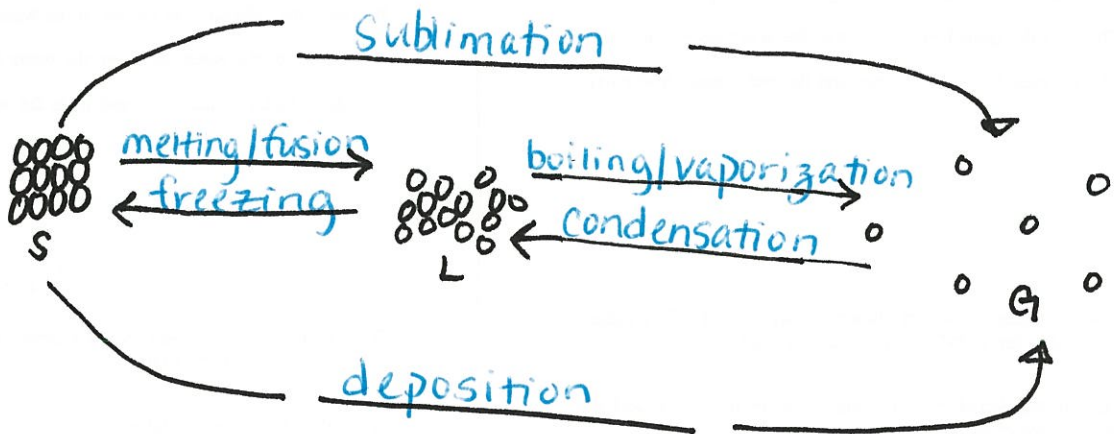 sublimation
melting/fusion
freezing
boiling/vaporization
condensation
S
L
G
deposition